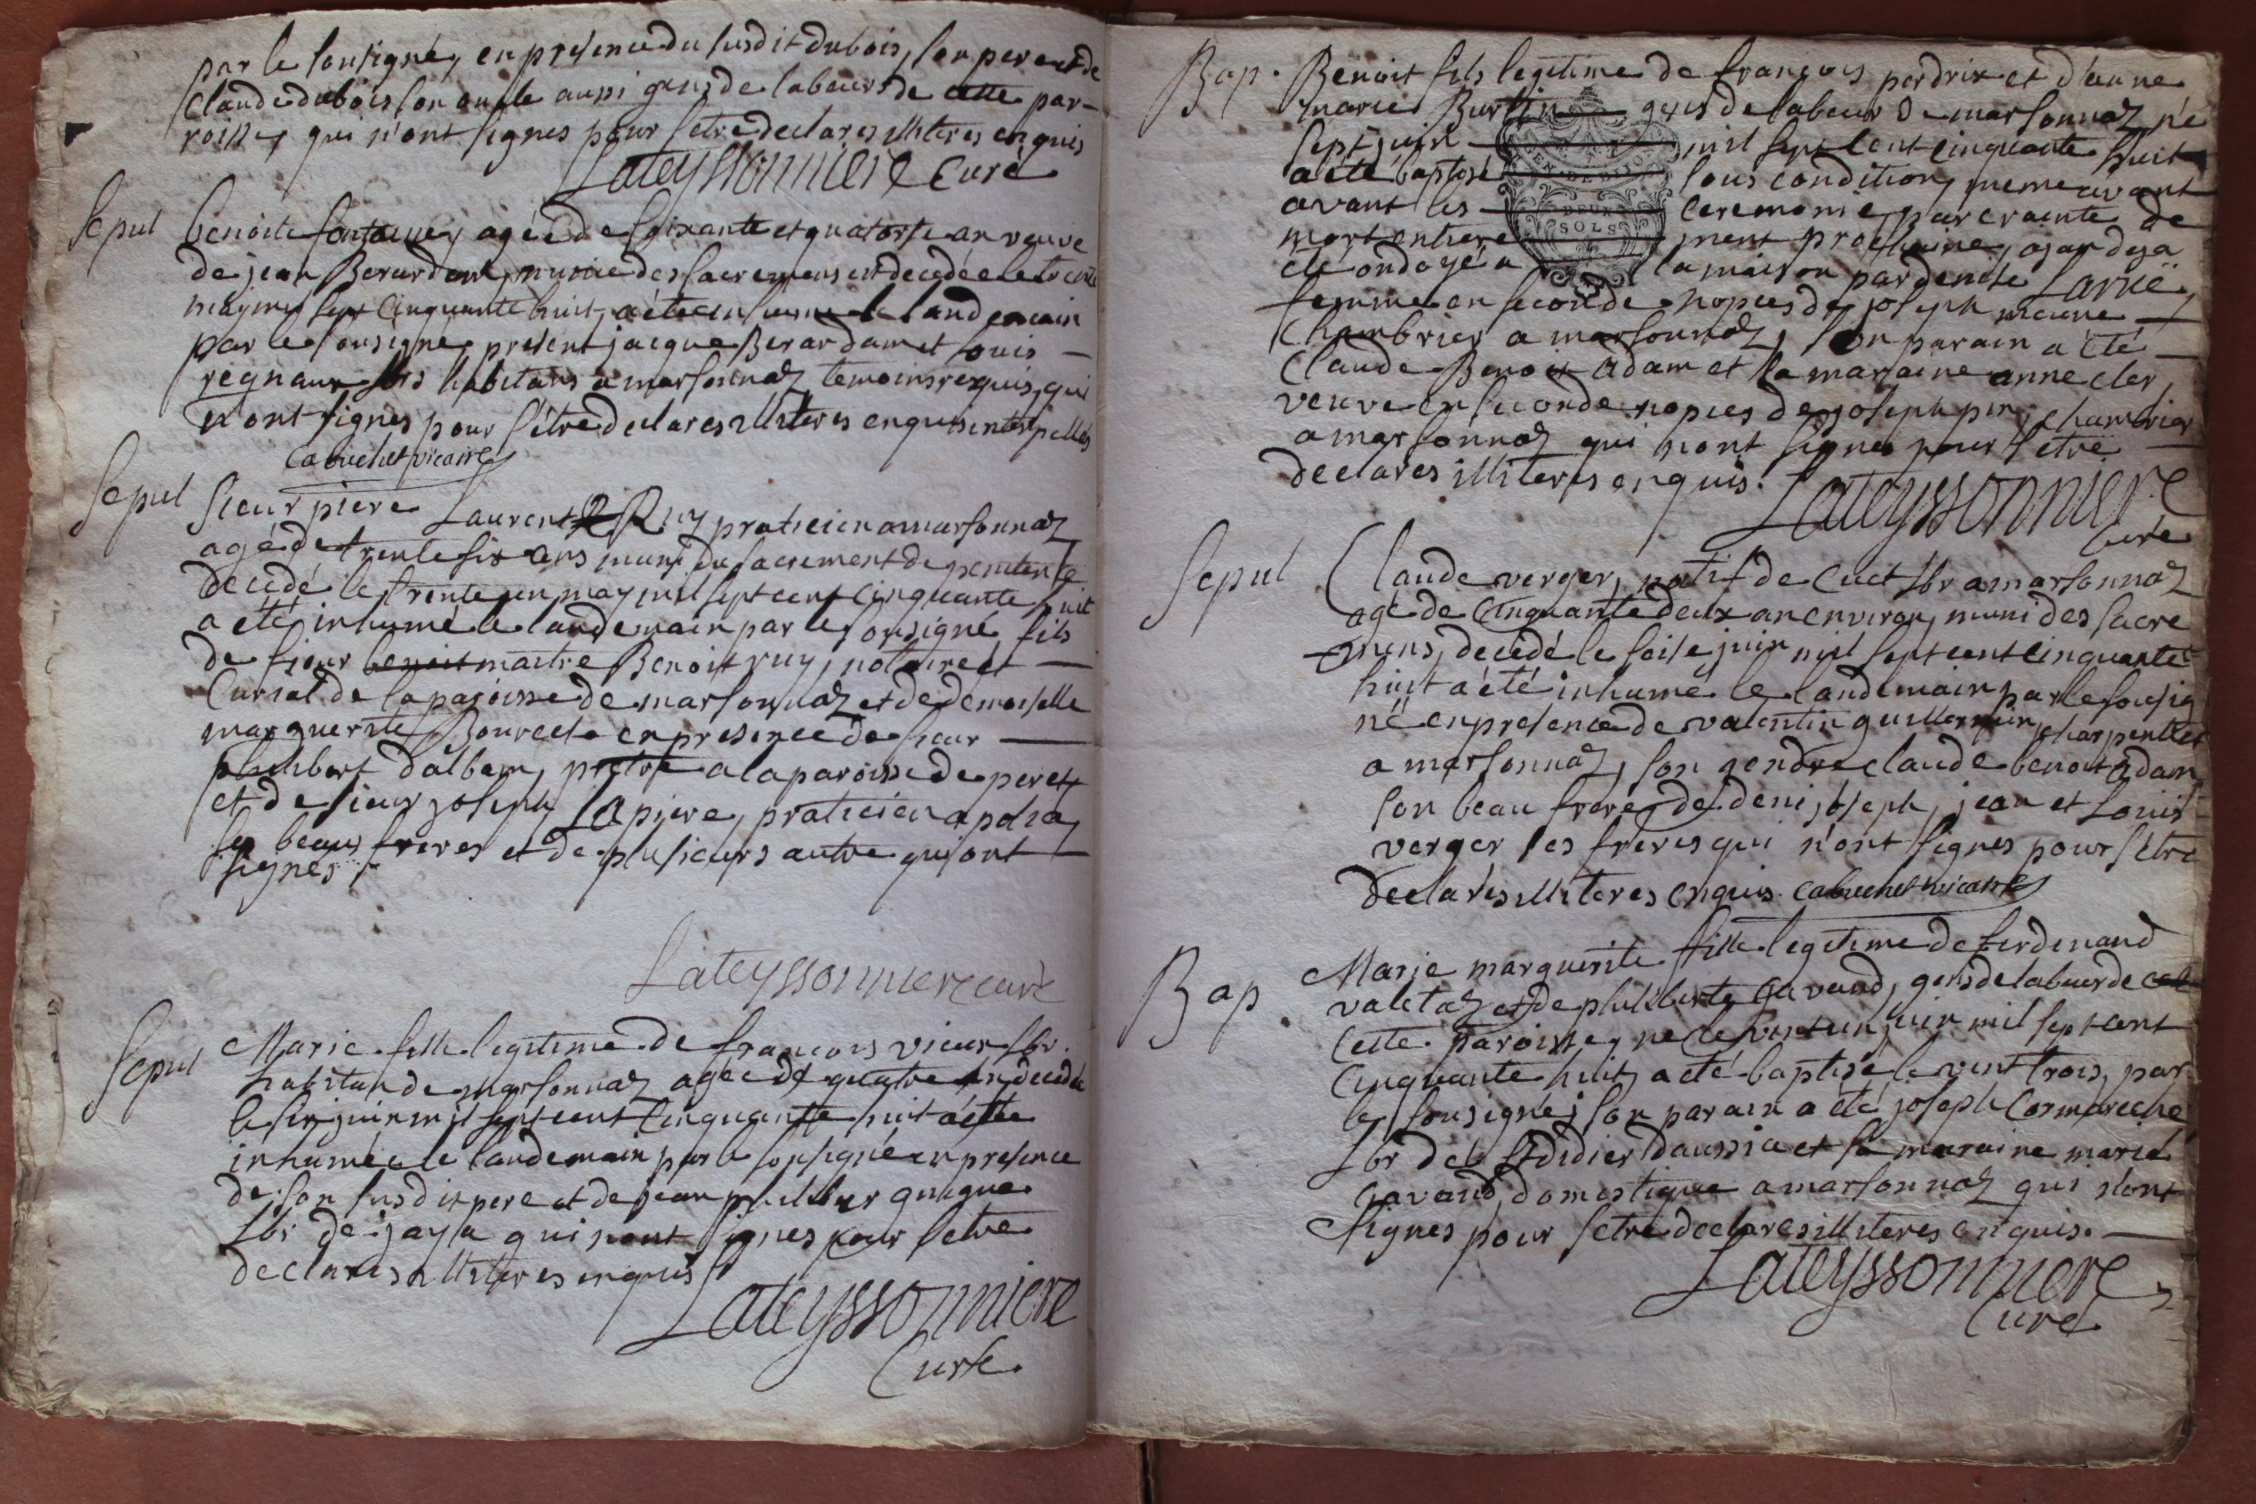 par le sousigné, en presence du susdit dubois, son pere et de
Claude dubois son oncle aussi gens de labeurs de cette par-
roisse, qui n'ont signes pour s'etre declares illiteres enquis
Lateyssonniere Curé
Sepul
benoite fontaine, agée de soixante et quatorse an veuve
de jean Berardam, munie des sacremens est decedée le trente
may mil sept Cinquante huit, a été inhumé le landemain
par le sousigné, present jacque Berardam et louis
regnaud lbrs habitans a marsonnaz temoins requis, qui
n'ont signes pour s'être declares illiteres enquis interpellés
Cabuchet vicaire
Sepul
Sieur piere Laurent Ruy praticien a marsonnaz
agé de trente six ans muni du sacrement de penitence
decedé le trente un may mil sept cent cinquante huit
a été inhumé le landemain par le sousigné, fils
de sieur benoit maitre Benoit ruy, notaire et
Curial de la paroisse de marsonnaz et de demoiselle
marguerite Bouvete en presence de sieur
philibert dalbam, pretre a la paroisse de perex
et de sieur joseph Lapiere, praticien a polia,
ses beaux freres et de plusieurs autre qui ont
signes
Lateyssonniere curé
Sepul
Marie fille legitime de francois vieux lbr
habitan de marsonnaz agée de quatre an decedée
le six juin mil sept cent Cinquante huit a été
inhumée le landemain par le sousigné en presence
de son susdit pere et de jean philiber guigue
lbr de jaya qui n'ont signes pour s'etre
declares illiteres enquis
Lateyssonniere
Curé
Bap.
Benoit fils legitime de françois perdrix et d'anne
marie Burtin gens de labeur de marsonnaz né
sept juin mil sept cent cinquante huit
a été baptisé sous condition, meme avant
avant les ceremonie, par crainte de
mort entiere ment prochaine, ajan deja
été ondoyé a la maison par denise Larue,
femme en seconde nopces de joseph
Chambrier a marsonnaz, son parain a été
Claude Benoit adam et la maraine anne cler,
veuve en seconde nopces de joseph pin, chambrier
a marsonnaz qui n'ont signes pour s'etre
declares illiteres enquis.
Lateyssonniere
Curé
Sepul
Claude verger, natif de Cuet lbr a marsonnaz
agé de Cinquante deux an environ, muni des sacre
mens, decedé le seise juin mil sept cent cinquante
huit a été inhumé le landemain par le sousig
né en presence de valentin guillermin, charpentier
a marsonnaz, son gendre claude benoit adam
son beau frere de deni, joseph, jean et louis
verger ses freres qui n'ont signes pour s'etre
declares illiteres enquis. Cabuchet vicaire
Bap
Marie marguerite fille legitime de ferdinand
valetaz et de philiberte Gavand, gens de labeur de
Cette paroisse, né le vint un juin mil sept cent
Cinquante huit a été baptisé le vint trois, par
le sousigné, son parain a été joseph Cormareche
lbr de St didier daussia et sa maraine marie
Gavand, domestique a marsonnaz qui n'ont
signes pour s'etre declares illiteres enquis.
Lateyssonniere
Curé
DEUX
SOLS